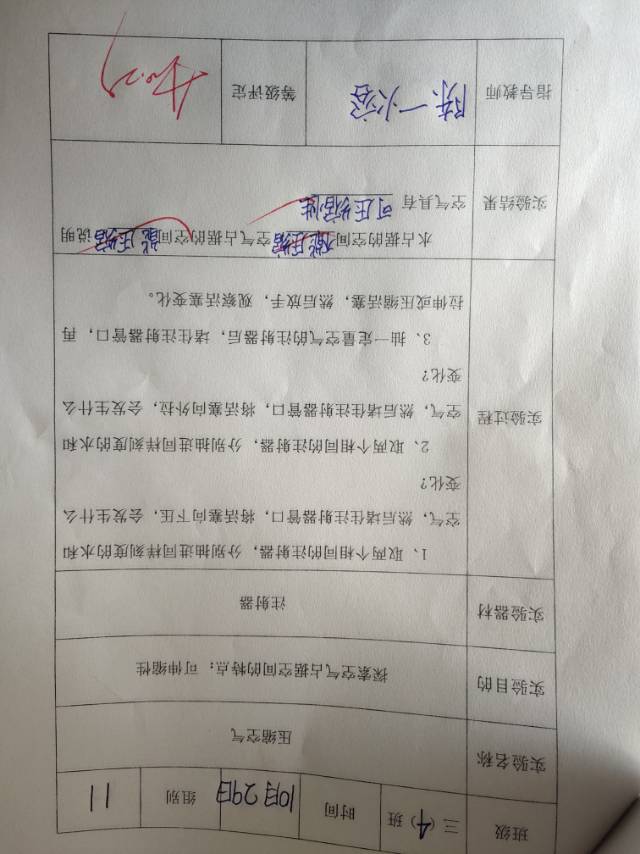 班级 三（4）班 时间 10月29日 组别 11
实验名称 压缩空气
实验目的 探索空气占据空间的特点：可伸缩性
实验器材 注射器
实验过程
1、取两个相同的注射器，分别抽进同样刻度的水和
空气，然后堵住注射器管口，将活塞向下压，会发生什么
变化？
2、取两个相同的注射器，分别抽进同样刻度的水和
空气，然后堵住注射器管口，将活塞向外拉，会发生什么
变化？
3、抽一定量空气的注射器后，堵住注射器管口，再
拉伸或压缩活塞，然后放手，观察活塞变化。
实验结果
水占据的空间 压缩 空气占据的空间 能压缩 说明
空气具有 可压缩性
指导教师 陈一 等级评定